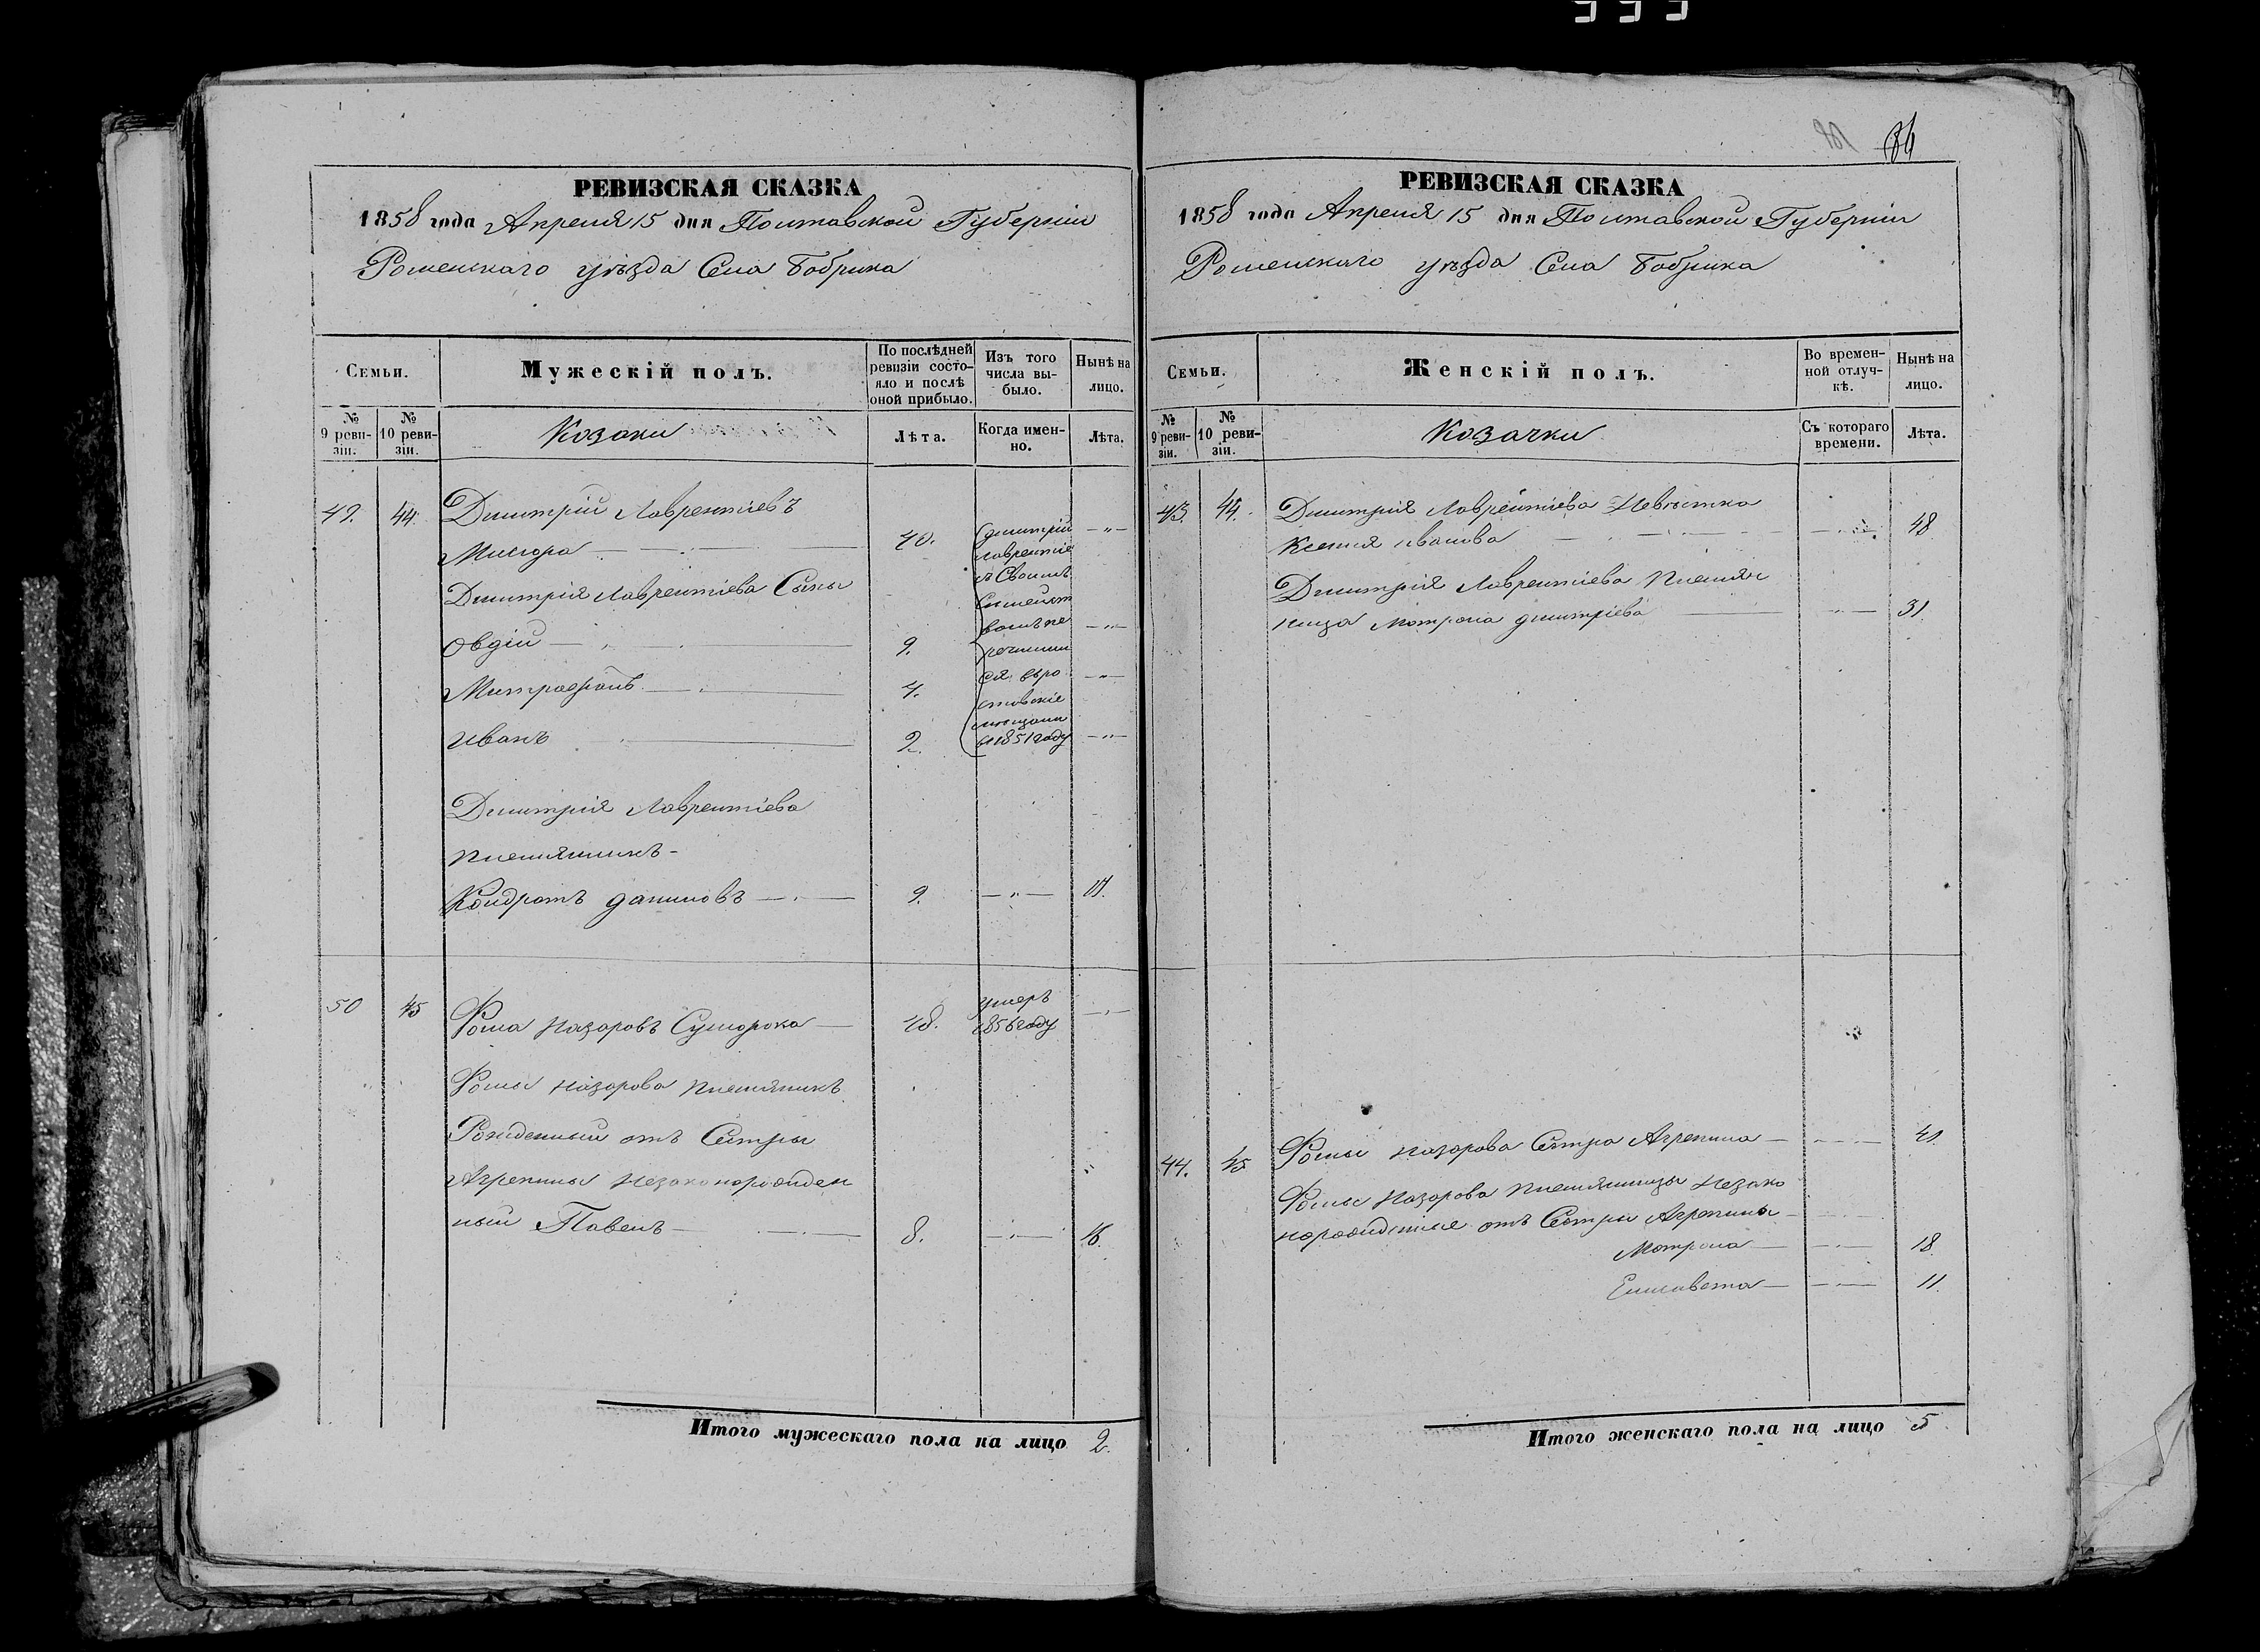 РЕВИЗСКАЯ СКАЗКА
1858 года Апреля 15 дня Полтавской Губерніи
Роменскаго уѣзда Села Бобрика
Семьи.
Мужескій полъ.
По послѣдней ревизіи состояло и послѣ оной прибыло.
Изъ того числа выбыло.
Нынѣ на лицо.
№ 9 ревизіи.
№ 10 ревизіи.
Козаки
Лѣта.
Когда именно.
Лѣта.
49. 44. Дмитрій Лаврентіевъ
40.
Дмитрія Лаврентіева Сыны
Овдій 9.
Митрофанъ 4.
Иванъ 2.
Дмитрій
Лаврентіе
съ Своимъ
Семейст
вомъ пе
речисли
ся въ Ро
мѣщани
1851 году
Дмитрія Лаврентіева
племянникъ
Кондратъ Даниловъ 9. 17.
50 45 Фома Назаровъ Суморока 48. умеръ 1856 году
Фомы Назарова племяникъ
Рожденный отъ Сестры
Агрепины Незаконорожден
ный Павелъ 8. 16.
Итого мужескаго пола на лицо 2.
36
РЕВИЗСКАЯ СКАЗКА
1858 года Апреля 15 дня Полтавской Губерніи
Роменскаго уѣзда Села Бобрика
Семьи.
Женскій полъ.
Во временной отлучкѣ.
Нынѣ на лицо.
№ 9 ревизіи.
№ 10 ревизіи.
Козачки
Съ котораго времени.
Лѣта.
43. 44. Дмитрія Лаврентіева Невѣстка
Ксенія Иванова 48
Дмитрія Лаврентіева племян
ница Мотрона Дмитріева 31
44. 45 Фомы Назарова Сестра Агрепина 41
Фомы Назарова племянницы Незако
норожденные отъ Сестры Агрепины
Мотрона 18
Елисавета 11.
Итого женскаго пола на лицо 5